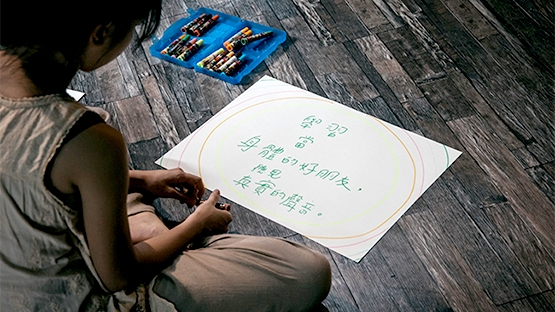 學習
當
身體的好朋友.
聽見
真實的聲音。